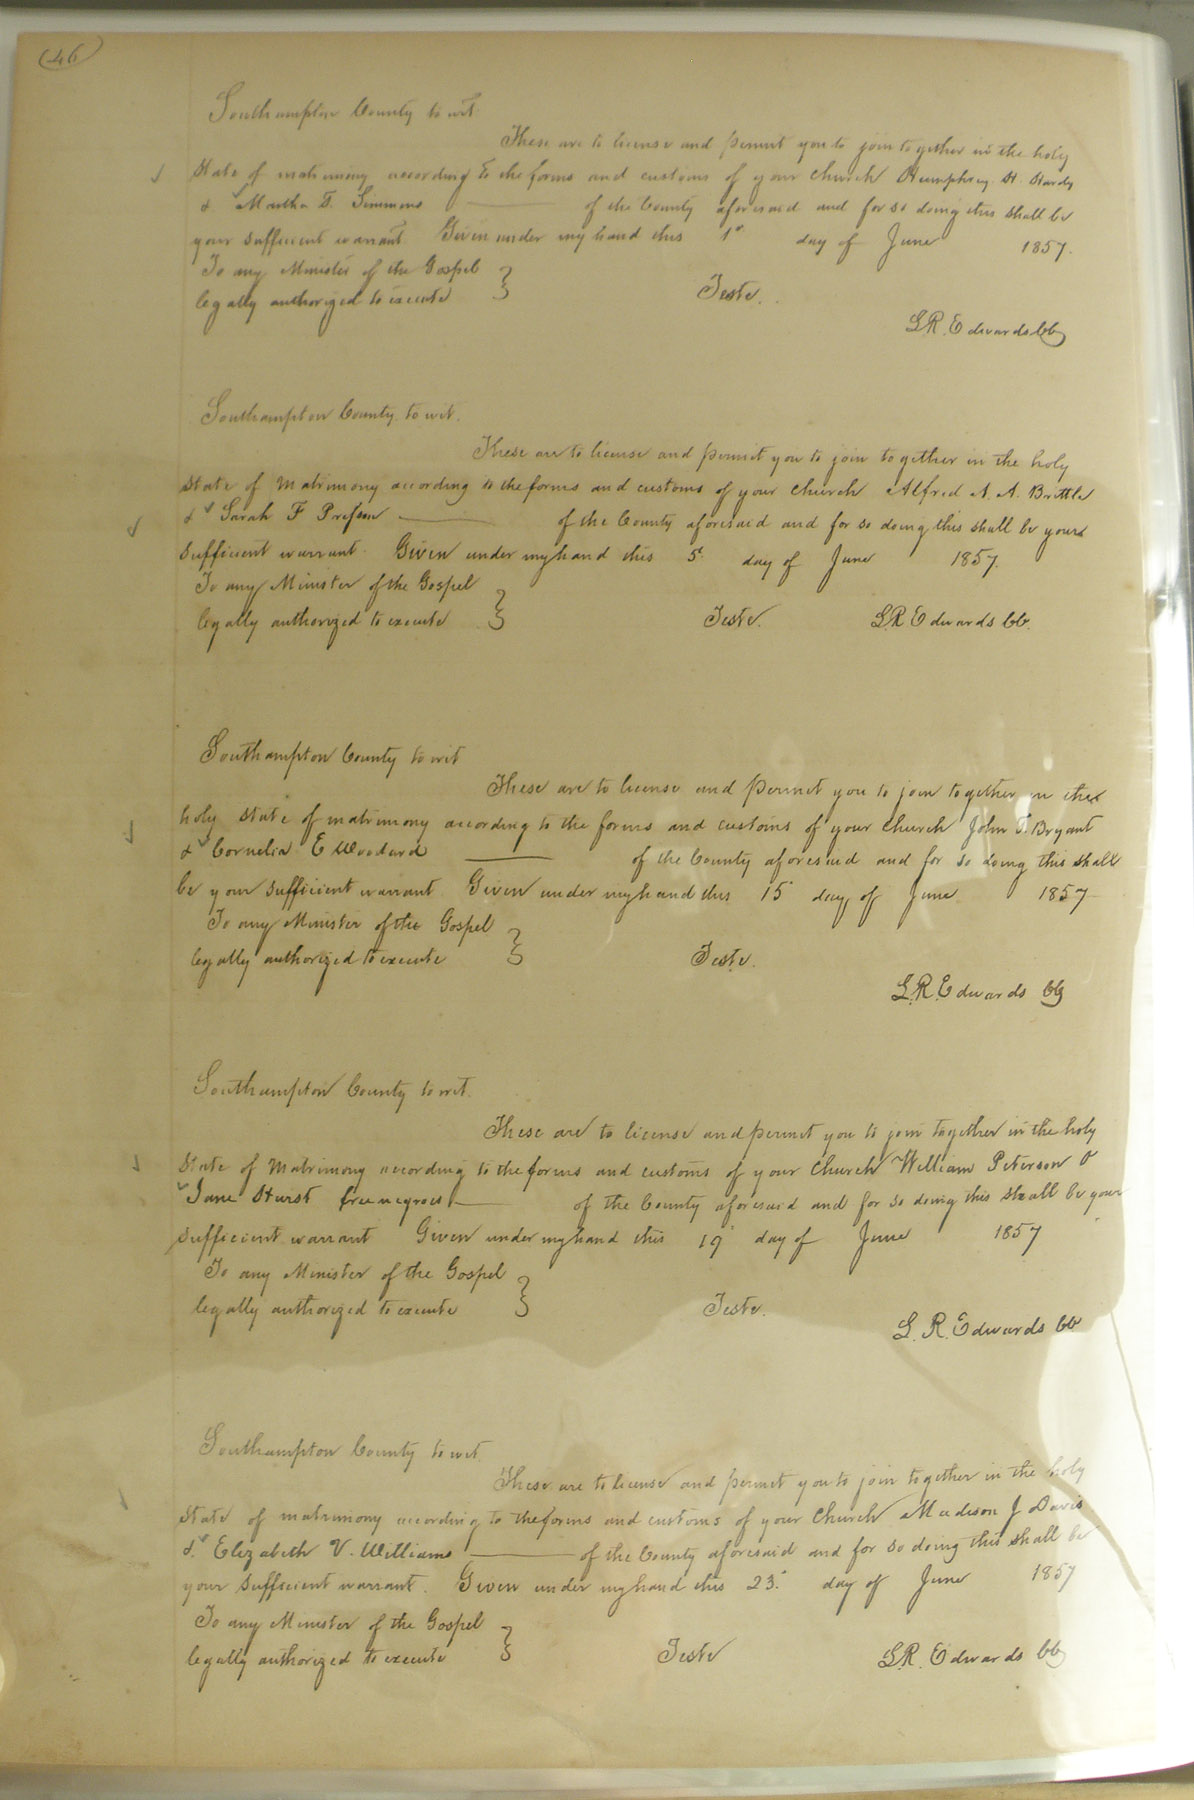 46
Southampton County to wit
These are to license and permit you to join together in the holy
State of matrimony according to the forms and customs of your church Humphrey H. Hardy
& Martha T. Simmons of the County aforesaid and for so doing this shall be
your sufficient warrant. Given under my hand this 1st day of June 1857.
To any Minister of the Gospel
legally authorized to execute } Teste.
L.R. Edwards CC
Southampton County to wit.
These are to license and permit you to join together in the holy
State of Matrimony according to the forms and customs of your church Alfred A. Brittle
& Sarah F of the County aforesaid and for so doing this shall be your
Sufficient warrant. Given under my hand this 5 day of June 1857.
To any Minister of the Gospel
legally authorized to execute } Teste. L R Edwards CC.
Southampton County to wit
These are to license and permit you to join together in the
holy state of matrimony according to the forms and customs of your church John Bryant
& Cornelia E Woodard of the County aforesaid and for so doing this shall
be your sufficient warrant. Given under my hand this 15 day of June 1857
To any Minister of the Gospel
legally authorized to execute } Teste.
L.R. Edwards CC
Southampton County to wit.
These are to license and permit you to join together in the holy
State of Matrimony according to the forms and customs of your church William Peterson &
Jane Hurst free negroes of the County aforesaid and for so doing this shall be your
sufficient warrant Given under my hand this 19 day of June 1857
To any Minister of the Gospel
legally authorized to execute } Teste.
L. R. Edwards CC
Southampton County to wit
These are to license and permit you to join together in the holy
State of matrimony according to the forms and customs of your church Madison J Davis
& Elizabeth V. Williams of the County aforesaid and for so doing this shall be
your sufficient warrant. Given under my hand this 23. day of June 1857
To any Minister of the Gospel
legally authorized to execute } Teste L.R. Edwards CC